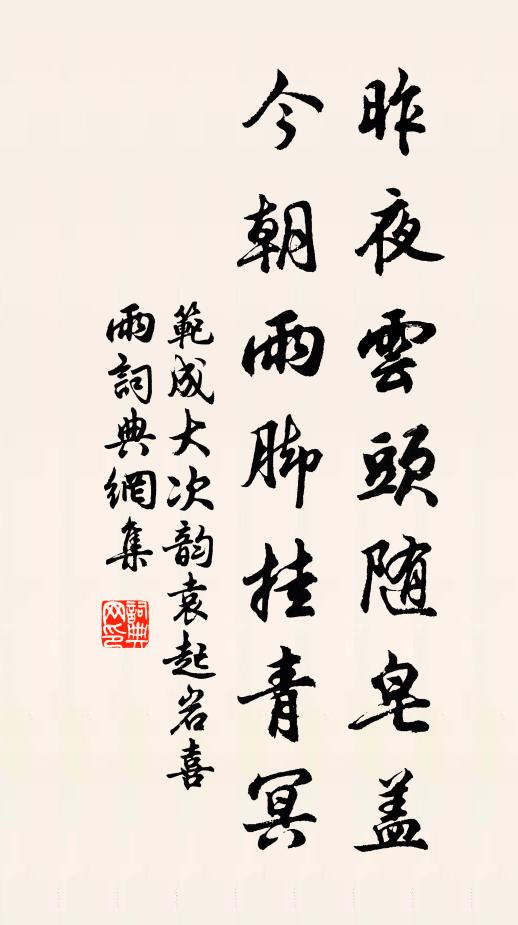 昨夜雲頭随皂盖
今朝雨脚挂青冥
範成大次韵袁起岩喜
雨詞典網集
詞典
网印